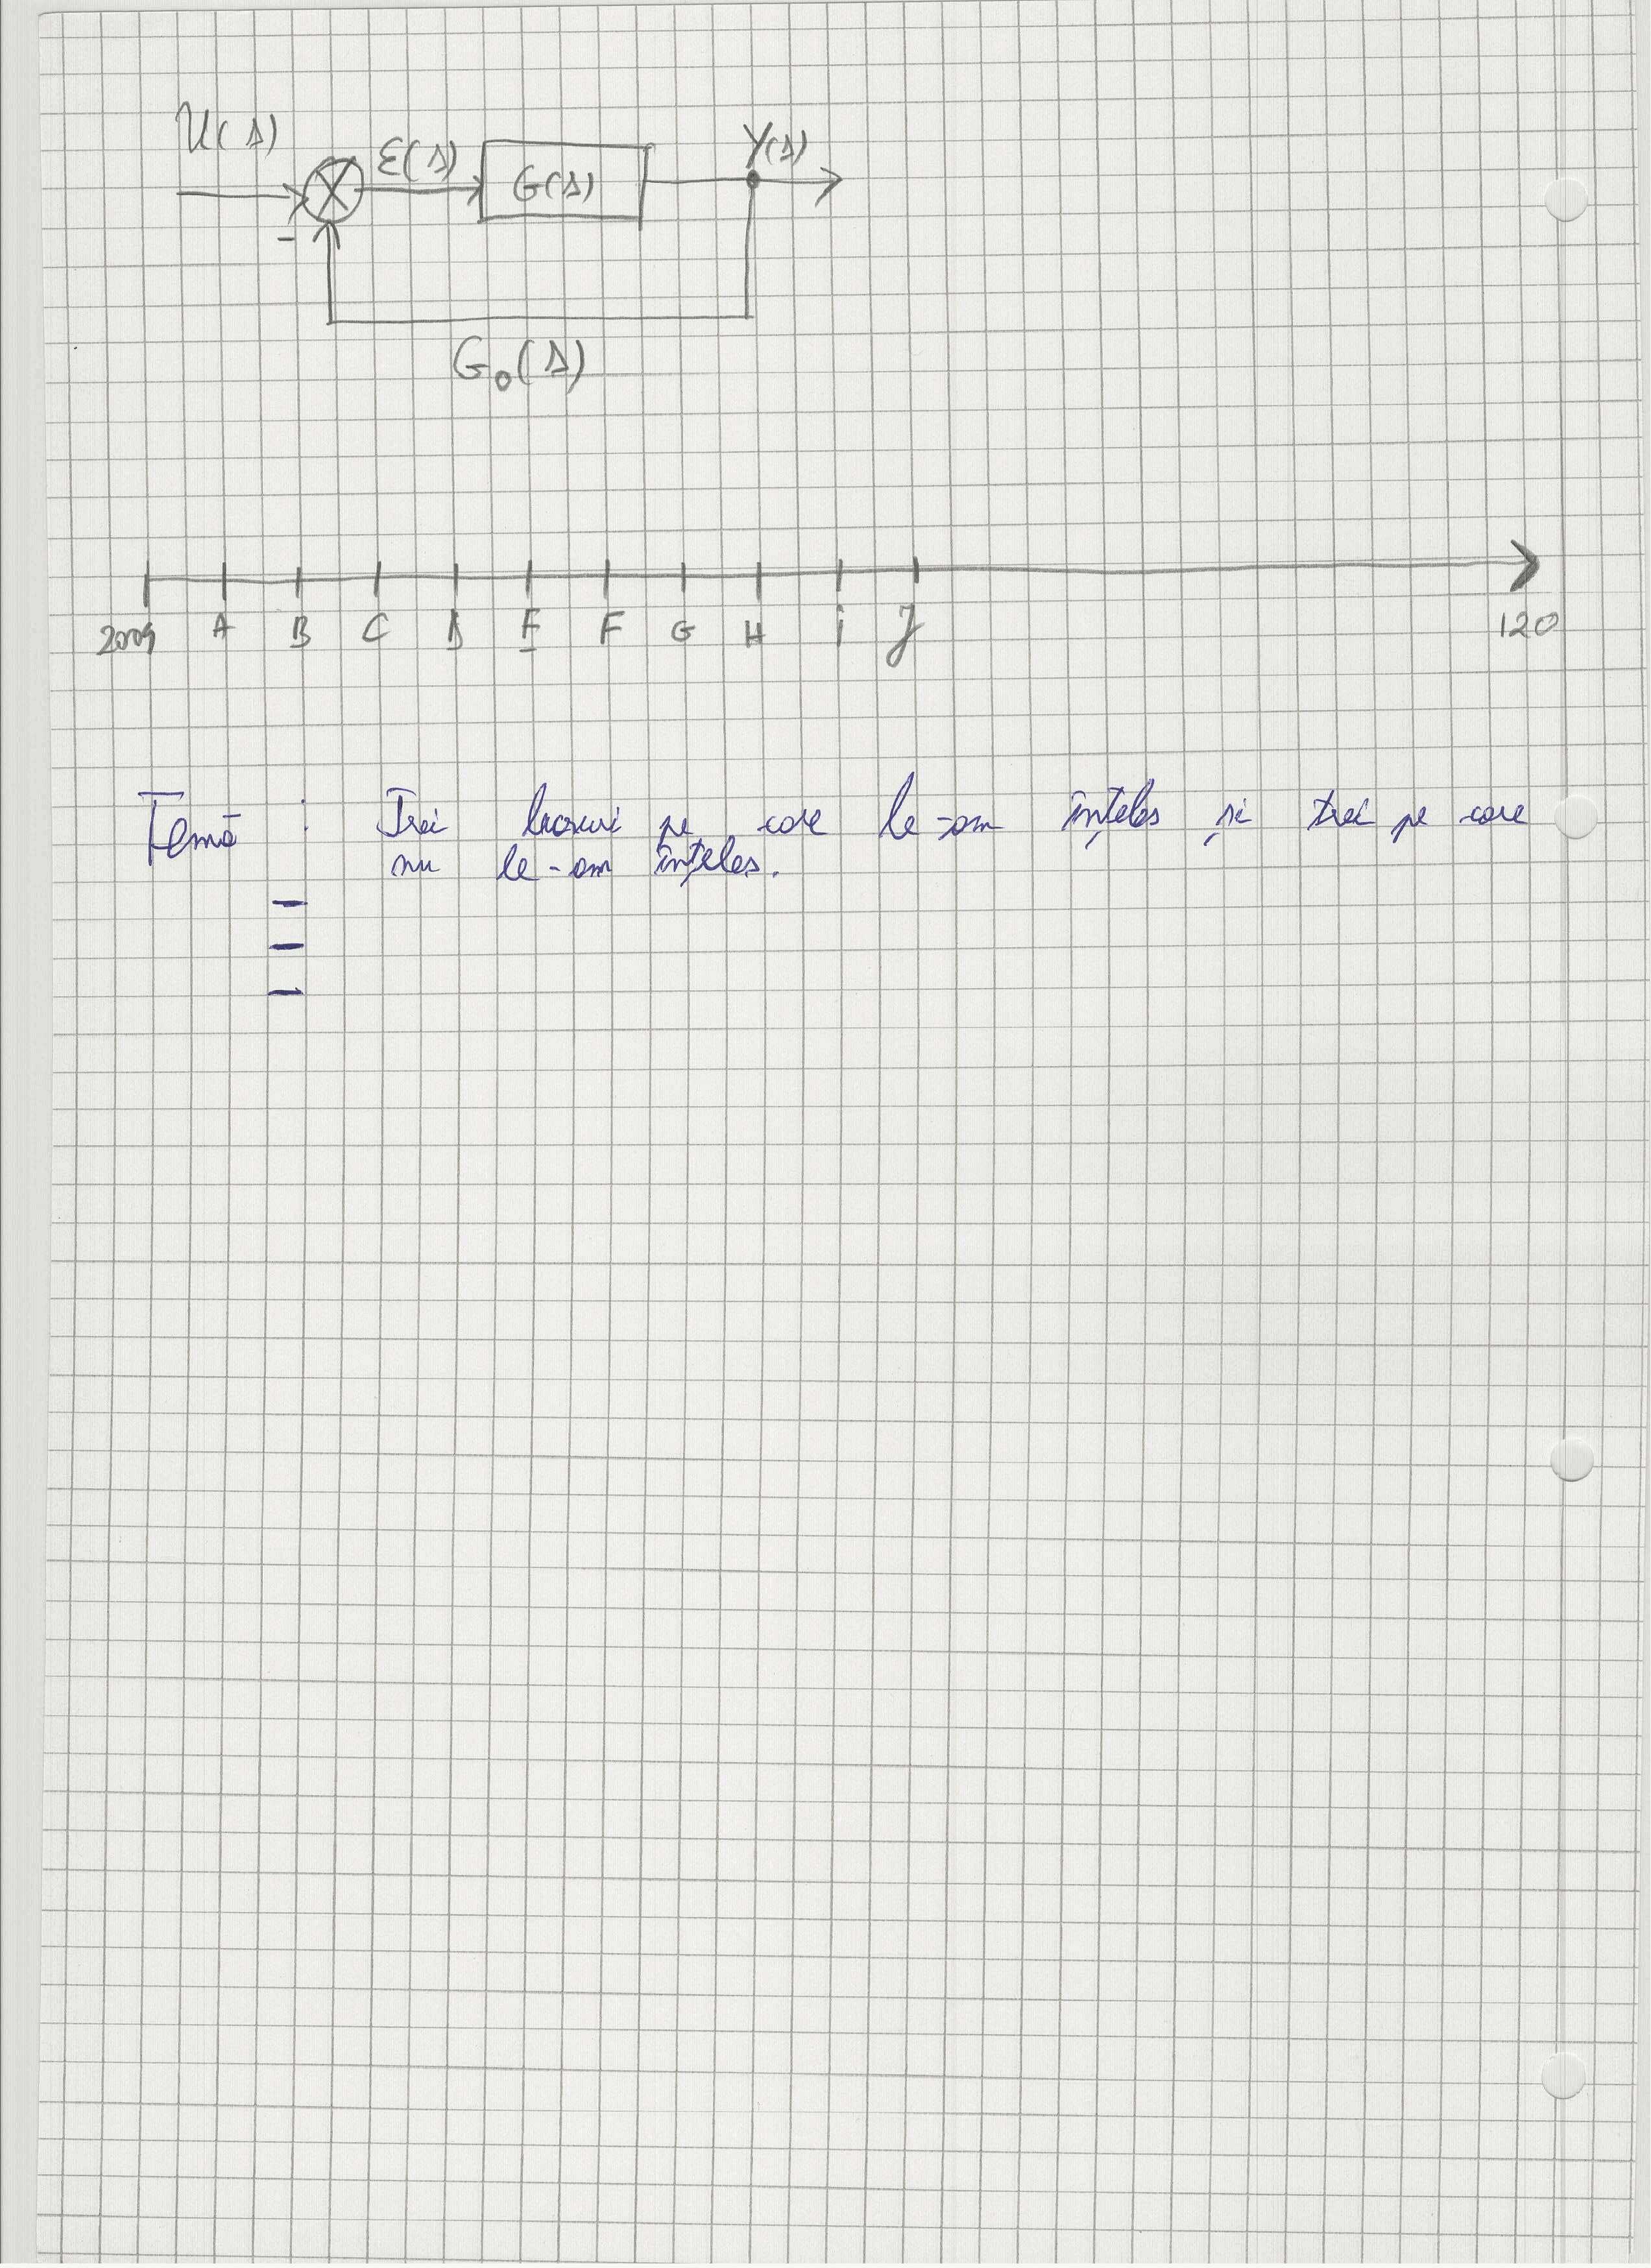 U(s)
ε(s)
G(s)
Y(s)
-
G₀(s)
2009 A B C D E F G H i J 120
Temă : Trei lucruri pe care le-am înțeles și trei pe care
nu le-am înțeles.
-
-
-